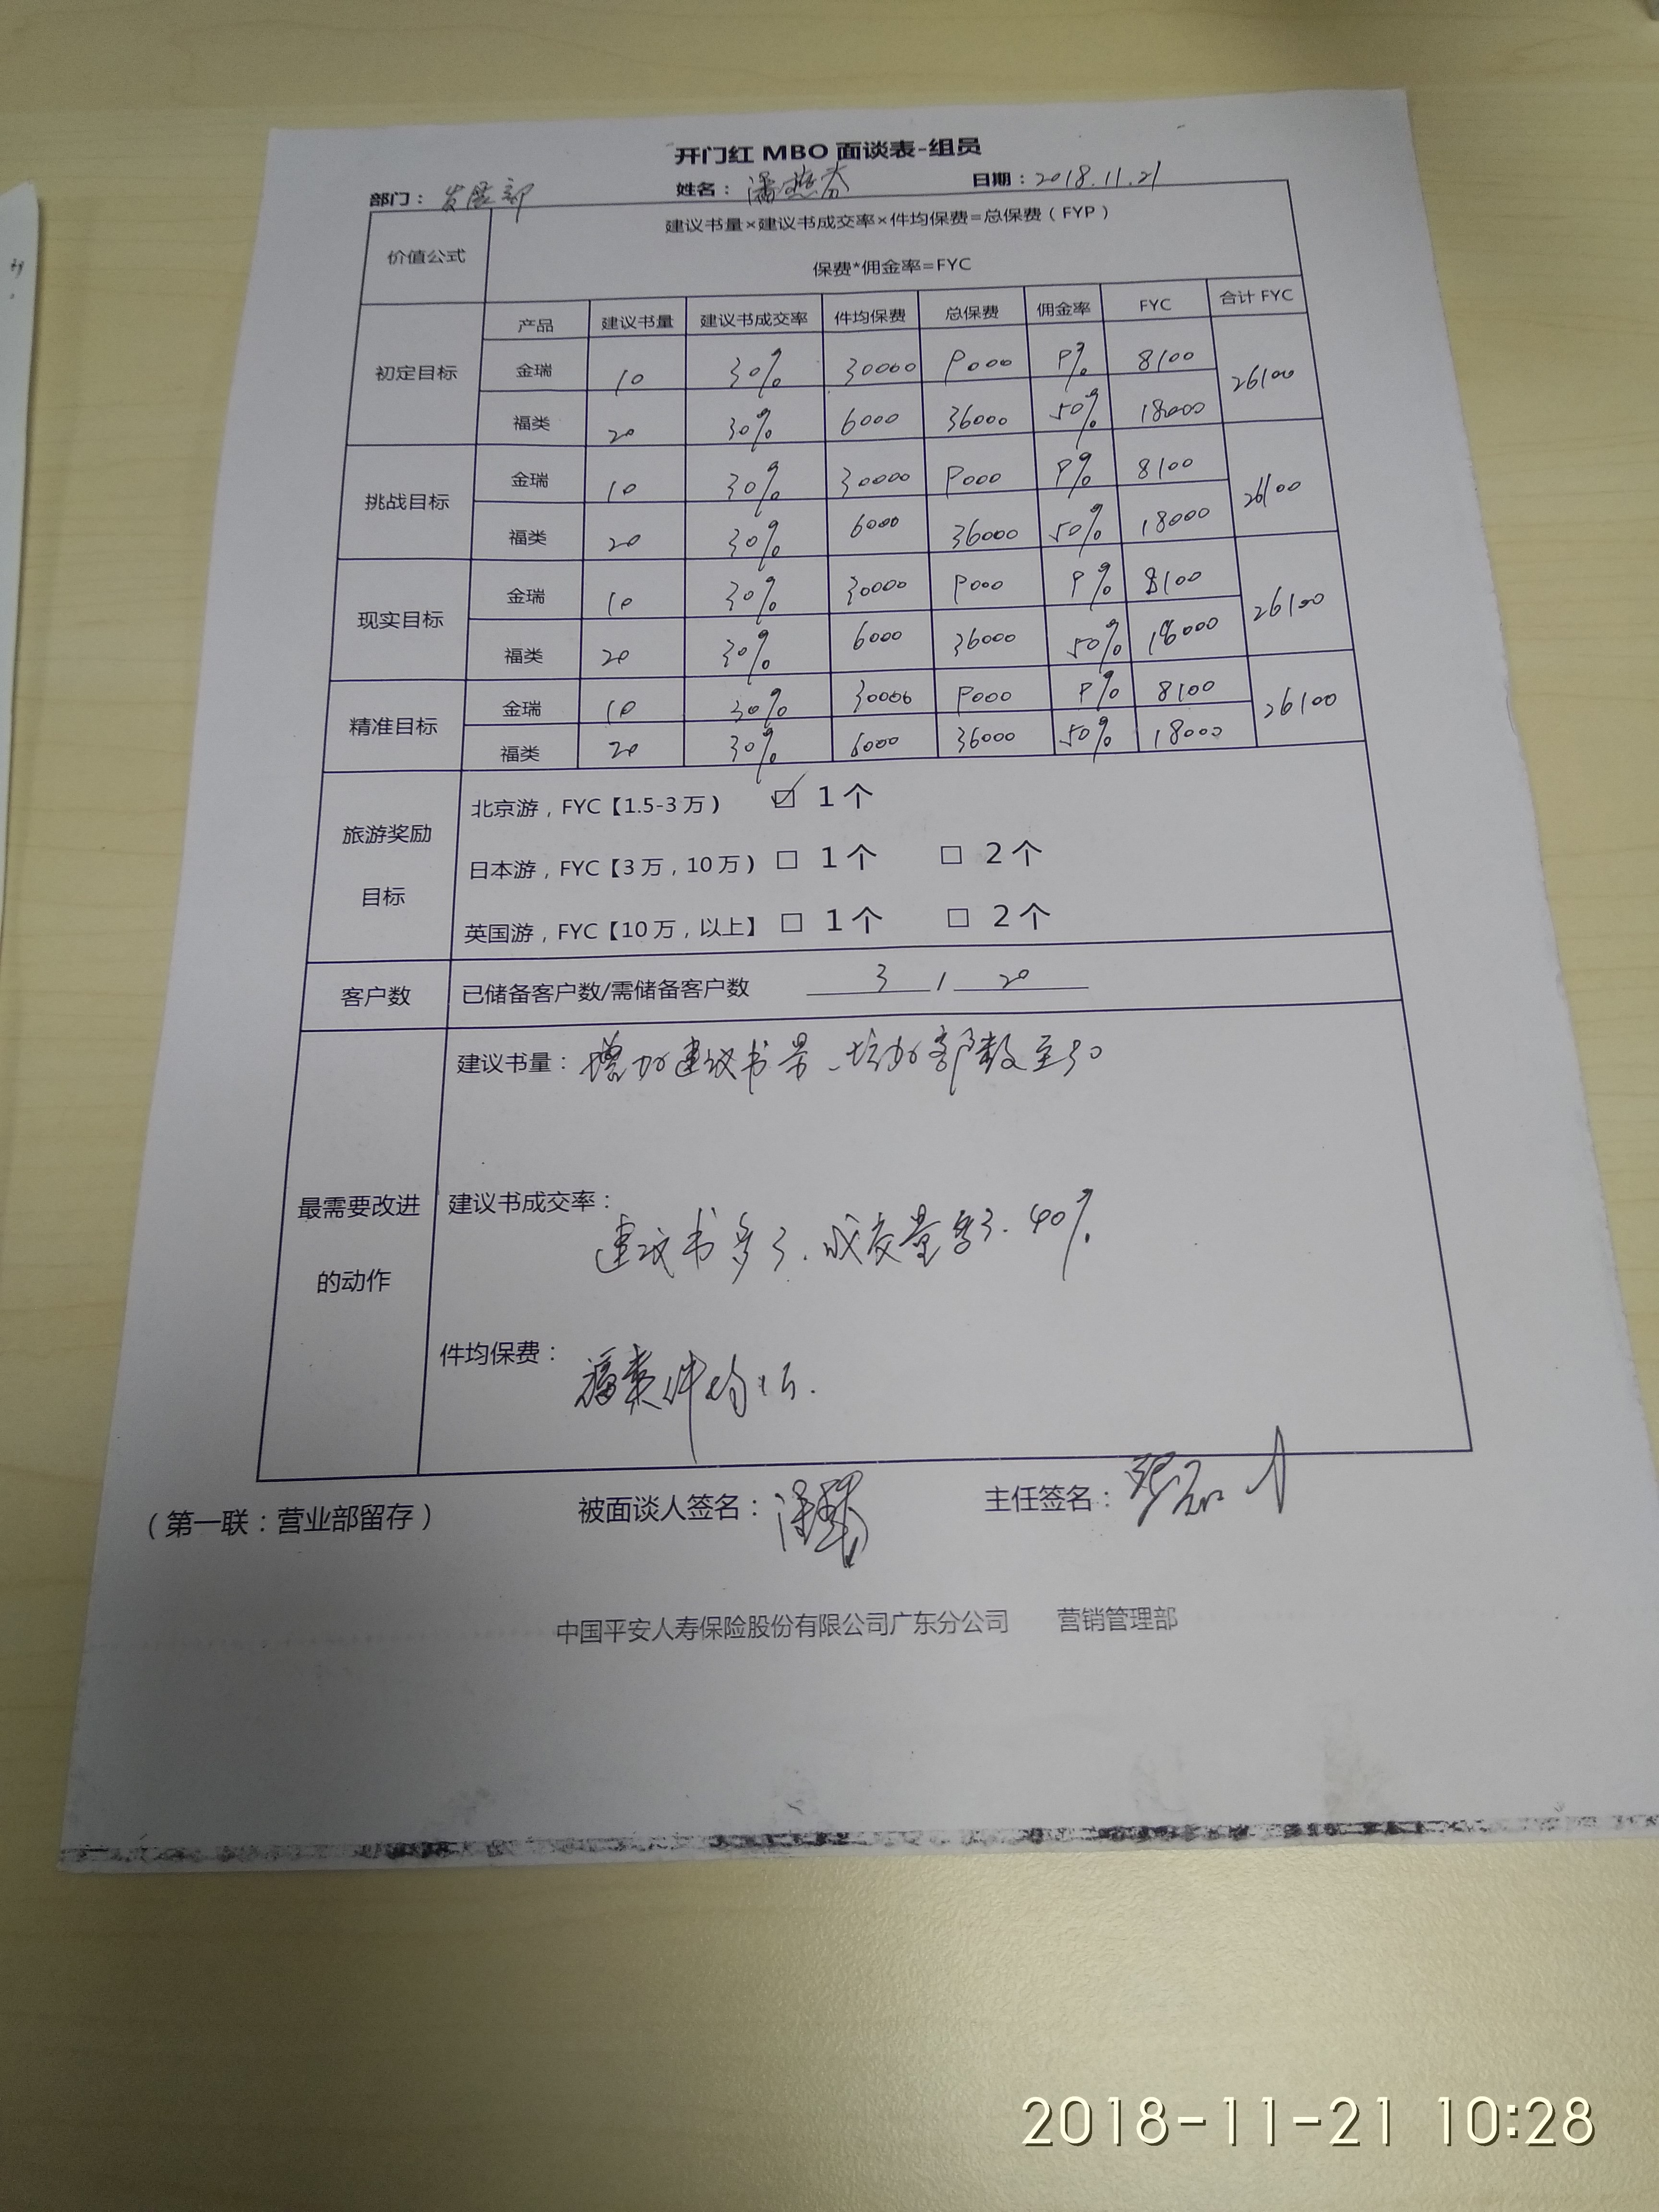 开门红 MBO 面谈表-组员
部门：发展部 姓名：潘 日期：2018.11.21
价值公式 建议书量×建议书成交率×件均保费=总保费（FYP）
保费*佣金率=FYC
产品 建议书量 建议书成交率 件均保费 总保费 佣金率 FYC 合计 FYC
初定目标 金瑞 10 30% 30000 9000 9% 8100 26100
福类 20 30% 6000 36000 50% 18000
挑战目标 金瑞 10 30% 30000 9000 9% 8100 26100
福类 20 30% 6000 36000 50% 18000
现实目标 金瑞 10 30% 30000 9000 9% 8100 26100
福类 20 30% 6000 36000 50% 18000
精准目标 金瑞 10 30% 30000 9000 9% 8100 26100
福类 20 30% 6000 36000 50% 18000
旅游奖励
目标
北京游，FYC【1.5-3 万） ☑ 1 个
日本游，FYC【3 万，10 万） □ 1 个 □ 2 个
英国游，FYC【10 万，以上】 □ 1 个 □ 2 个
客户数 已储备客户数/需储备客户数 3 / 20
最需要改进
的动作
建议书量：增加建议书量、增加客户数至30
建议书成交率：
建议书多了、成交量 了、40%
件均保费：福类件均
（第一联：营业部留存） 被面谈人签名： 主任签名：
中国平安人寿保险股份有限公司广东分公司 营销管理部
2018-11-21 10:28